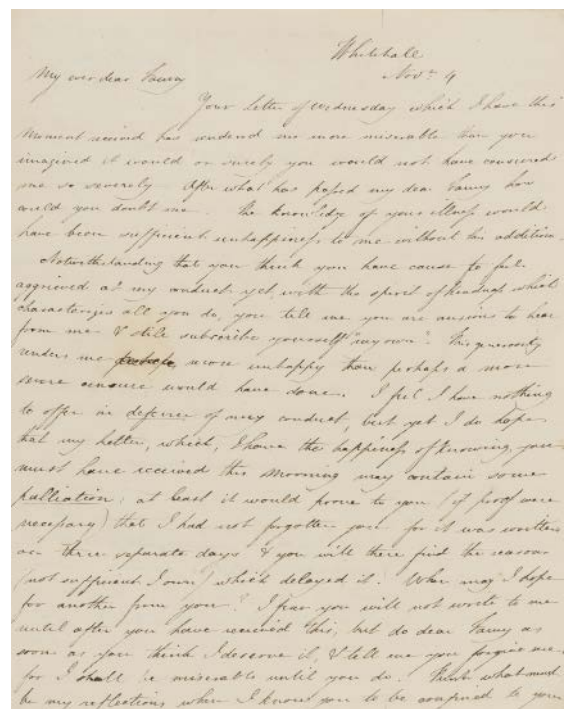 Whitehall
Nov.r 4
My ever dear Fanny
Your letter of Wednesday which I have this
moment received has rendered me more miserable than you
imagined it would or surely you would not have censured
me so severely. After what has passed my dear Fanny how
could you doubt me. The knowledge of your illness would
have been sufficient unhappiness to me without this addition.
Notwithstanding that you think you have cause to feel
aggrieved at my conduct yet, with the spirit of kindness which
characterizes all you do, you tell me you are anxious to hear
from me & still subscribe yourself "my own". This generosity
renders me more unhappy than perhaps a more
severe censure would have done. I feel I have nothing
to offer in defence of my conduct, but yet I do hope
that my letter, which, I have the happiness of knowing, you
must have received this morning may contain some
palliation: at least it would prove to you (if proof were
necessary) that I had not forgotten you for it was written
on three separate days & you will there find the reason
(not sufficient I own) which delayed it. When may I hope
for another from you? I fear you will not write to me
until after you have received this, but do dear Fanny as
soon as you think I deserve it, & tell me you forgive me
for I shall be miserable until you do. Think what must
be my reflections when I know you to be confined to your